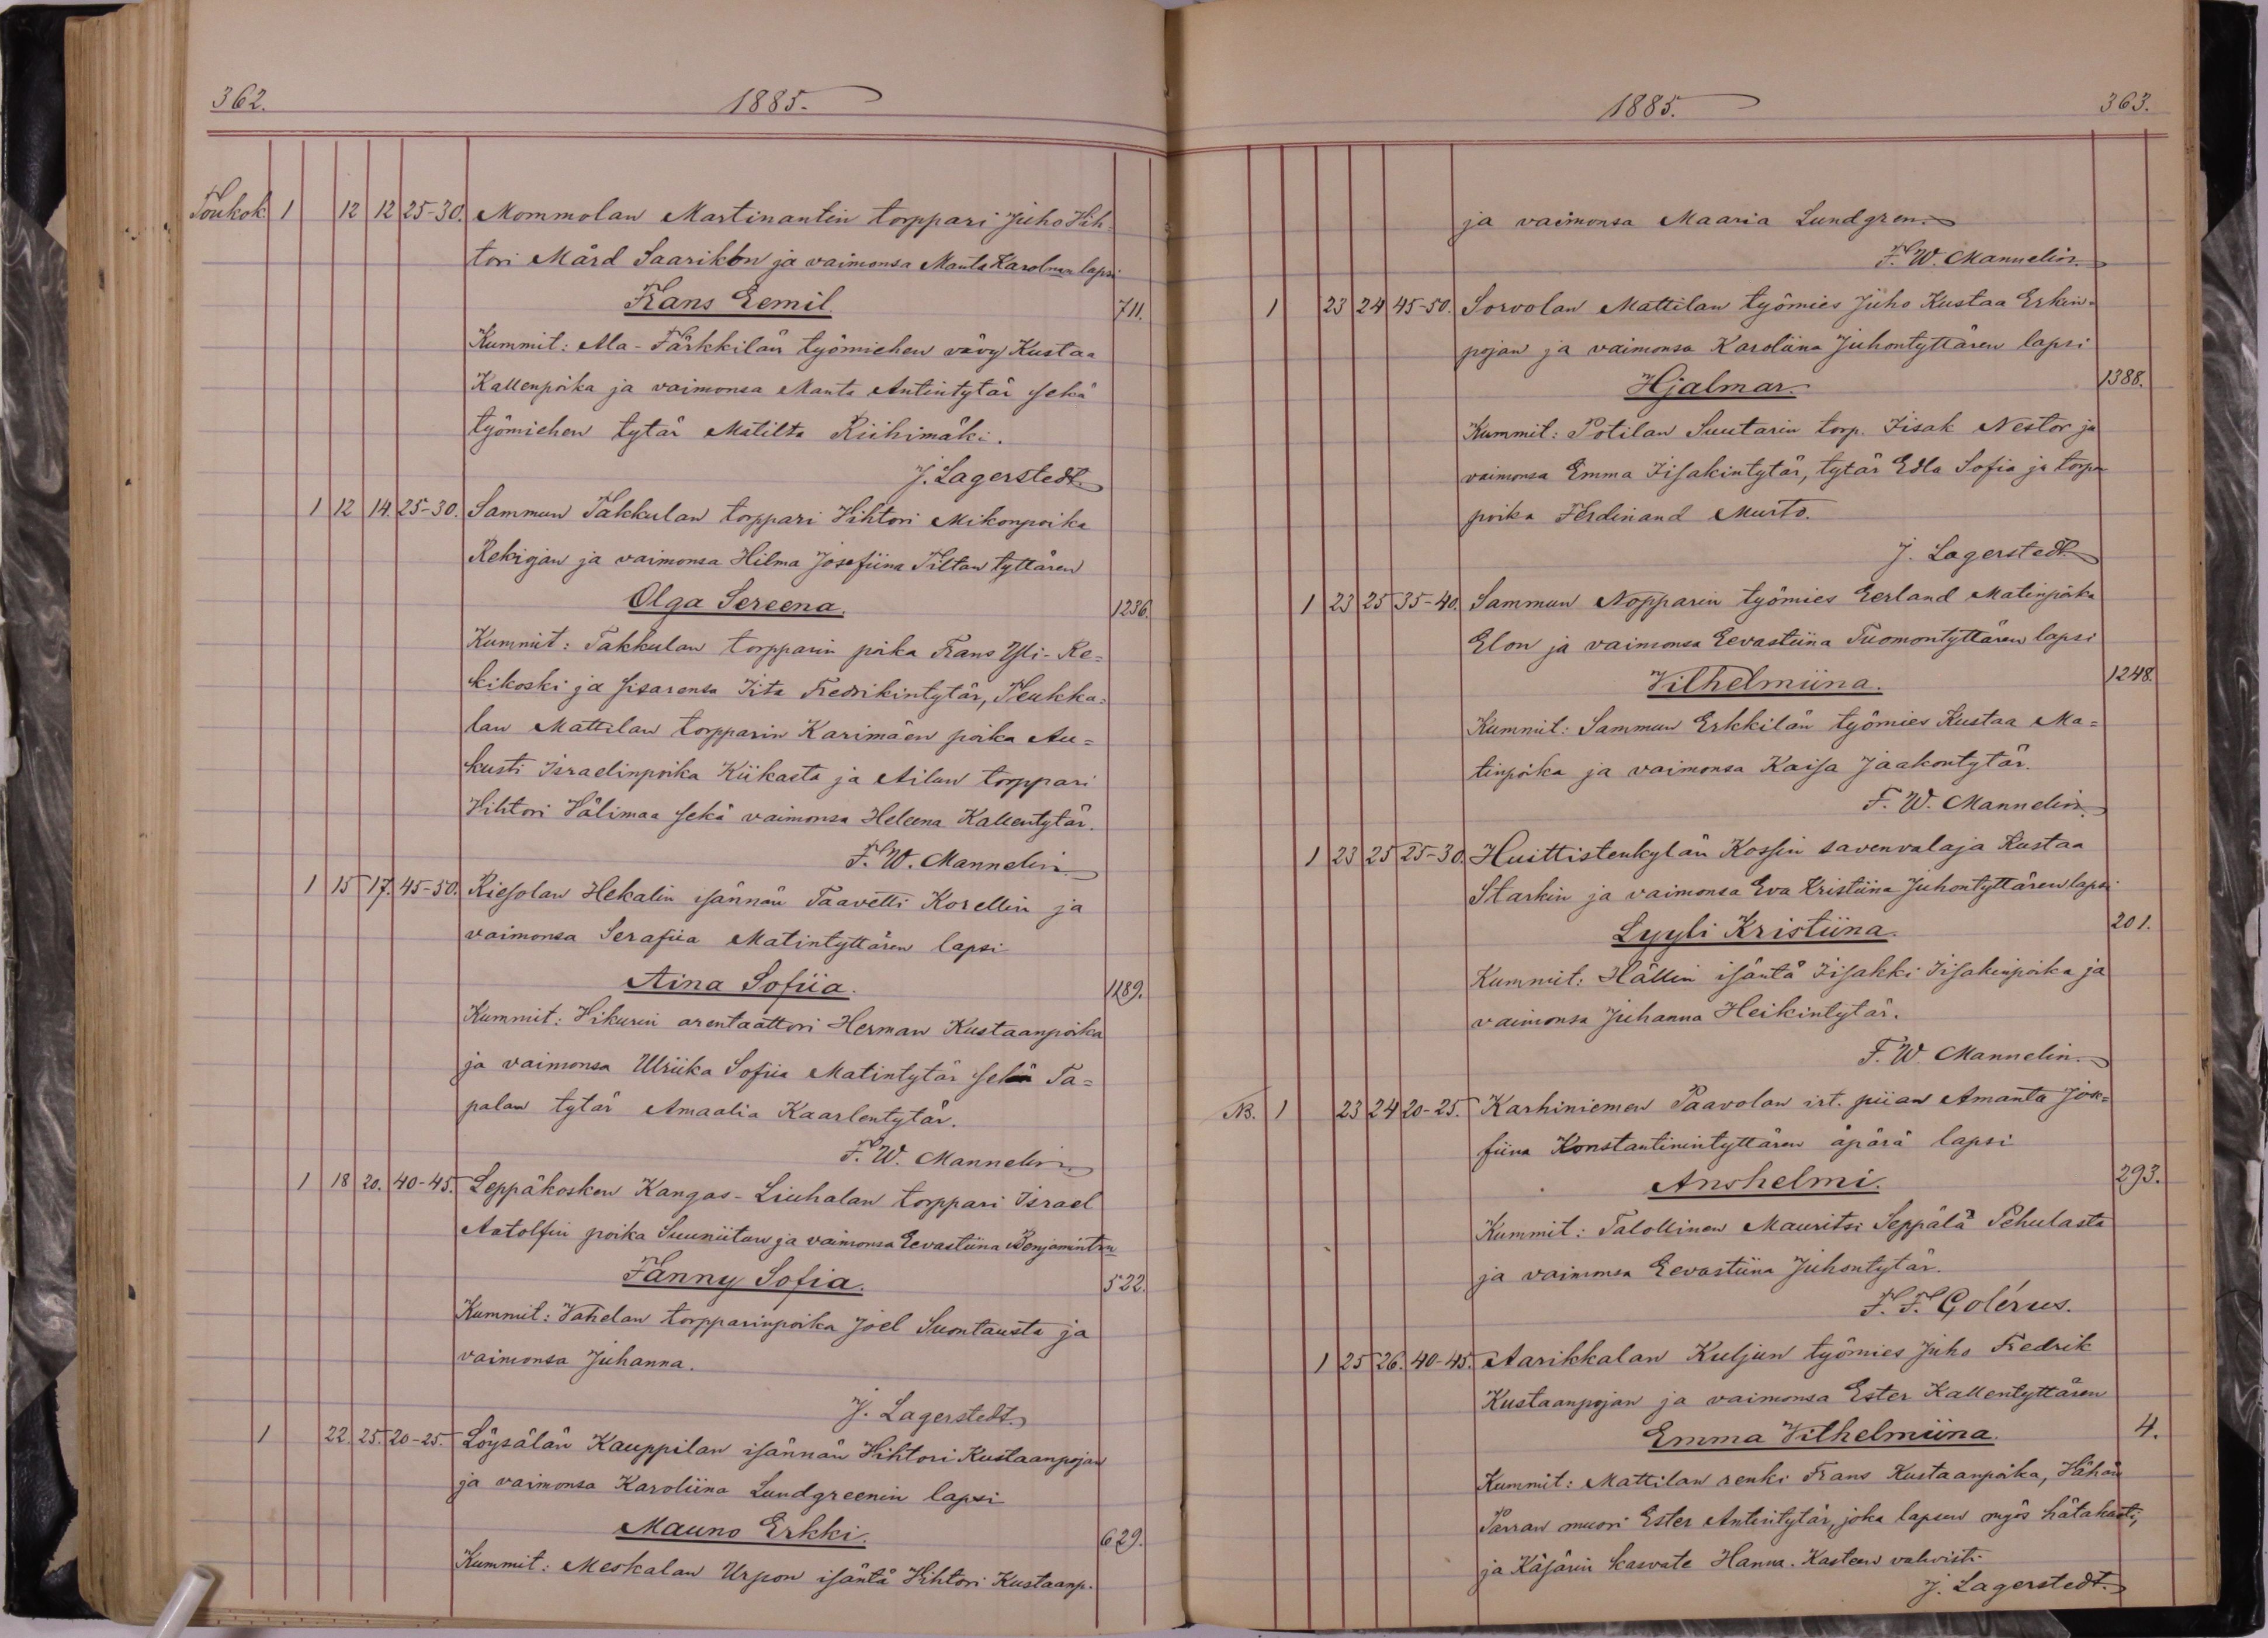 362. 1885.
Toukok. 1 12 12 25-30. Mommolan Martinantin torppari Juho Vih-
tori Mård Saarikon ja vaimonsa Manta Karolinan lapsi
Frans Eemil. 711.
Kummit: Ala-Färkkilän työmiehen vävy Kustaa
Kallenpoika ja vaimonsa Manta Antintytär sekä
työmiehen tytär Matilta Riihimäki.
J. Lagerstedt.
1 12 14. 25-30. Sammun Takkulan torppari Vihtori Mikonpoika
Rekiojan ja vaimonsa Hilma Josefiina Tiltan tyttären
Olga Sereena. 1236.
Kummit: Takkulan torpparin poika Frans Yli-Re=
kikoski ja sisarensa Iita Fredrikintytär, Peukka=
lan Mattilan torpparin Karimäen poika Au=
kusti Israelinpoika Kiikasta ja Ailan torppari
Vihtori Välimaa sekä vaimonsa Heleena Kallentytär.
F. W. Mannelin.
1 15 17. 45-50. Riesolan Hekalin isännän Taavetti Korellin ja
vaimonsa Serafiia Matintyttären lapsi
Aina Sofiia. 1189.
Kummit: Vikurin arentaattori Herman Kustaanpoika
ja vaimonsa Ulriika Sofiia Matintytär sekä Ta=
palan tytär Amaalia Kaarlentytär.
F. W. Mannelin.
1 18 20. 40-45. Leppäkosken Kangas-Liuhalan torppari Israel
Aatolfin poika Suuniitun ja vaimonsa Eevastiina Benjamintn
Fanny Sofia. 522.
Kummit: Vahelan torpparinpoika Joel Suontausta ja
vaimonsa Juhanna.
J. Lagerstedt.
1 22. 25. 20-25. Löysälän Kauppilan isännän Vihtori Kustaanpojan
ja vaimonsa Karoliina Lundgreenin lapsi
Mauno Erkki. 629.
Kummit: Meskalan Urpon isäntä Vihtori Kustaanp.
1885. 363.
ja vaimonsa Maaria Lundgren.
F. W. Mannelin.
1 23 24 45-50. Sorvolan Mattilan työmies Juho Kustaa Erkin-
pojan ja vaimonsa Karoliina Juhontyttären lapsi
Hjalmar. 1388.
Kummit: Potilan Suutarin torp. Iisak Nestor ja
vaimonsa Emma Iisakintytär, tytär Edla Sofia ja torpn
poika Ferdinand Musto.
J. Lagerstedt.
1 23 25 35-40. Sammun Nopparin työmies Eerland Matinpoika
Elon ja vaimonsa Eevastiina Tuomontyttären lapsi
Vilhelmiina. 1248.
Kummit: Sammun Erkkilän työmies Kustaa Ma=
tinpoika ja vaimonsa Kaisa Jaakontytär.
F. W. Mannelin.
1 23 25 25-30. Huittistenkylän Kossin savenvalaja Kustaa
Starkin ja vaimonsa Eva Kristiina Juhontyttären lapsi
Lyyli Kristiina. 201.
Kummit: Hällin isäntä Iisakki Iisakinpoika ja
vaimonsa Juhanna Heikintytär.
F. W. Mannelin.
NB. 1 23 24 20-25. Karhiniemen Paavolan irt. piian Amanta Jose=
fiina Konstantinintyttären äpärä lapsi
Anshelmi. 293.
Kummit: Talollinen Mauritsi Seppälä Pehulasta
ja vaimonsa Eevastiina Juhontytär.
F. F. Golérus.
1 25 26. 40-45. Aarikkalan Kuljun työmies Juho Fredrik
Kustaanpojan ja vaimonsa Ester Kallentyttären
Emma Vilhelmiina. 4.
Kummit: Mattilan renki Frans Kustaanpoika, Vähän
Parran muori Ester Antintytär, joka lapsen myös hätäkasti,
ja Käsärin kasvate Hanna. Kasteen vahvisti
J. Lagerstedt.